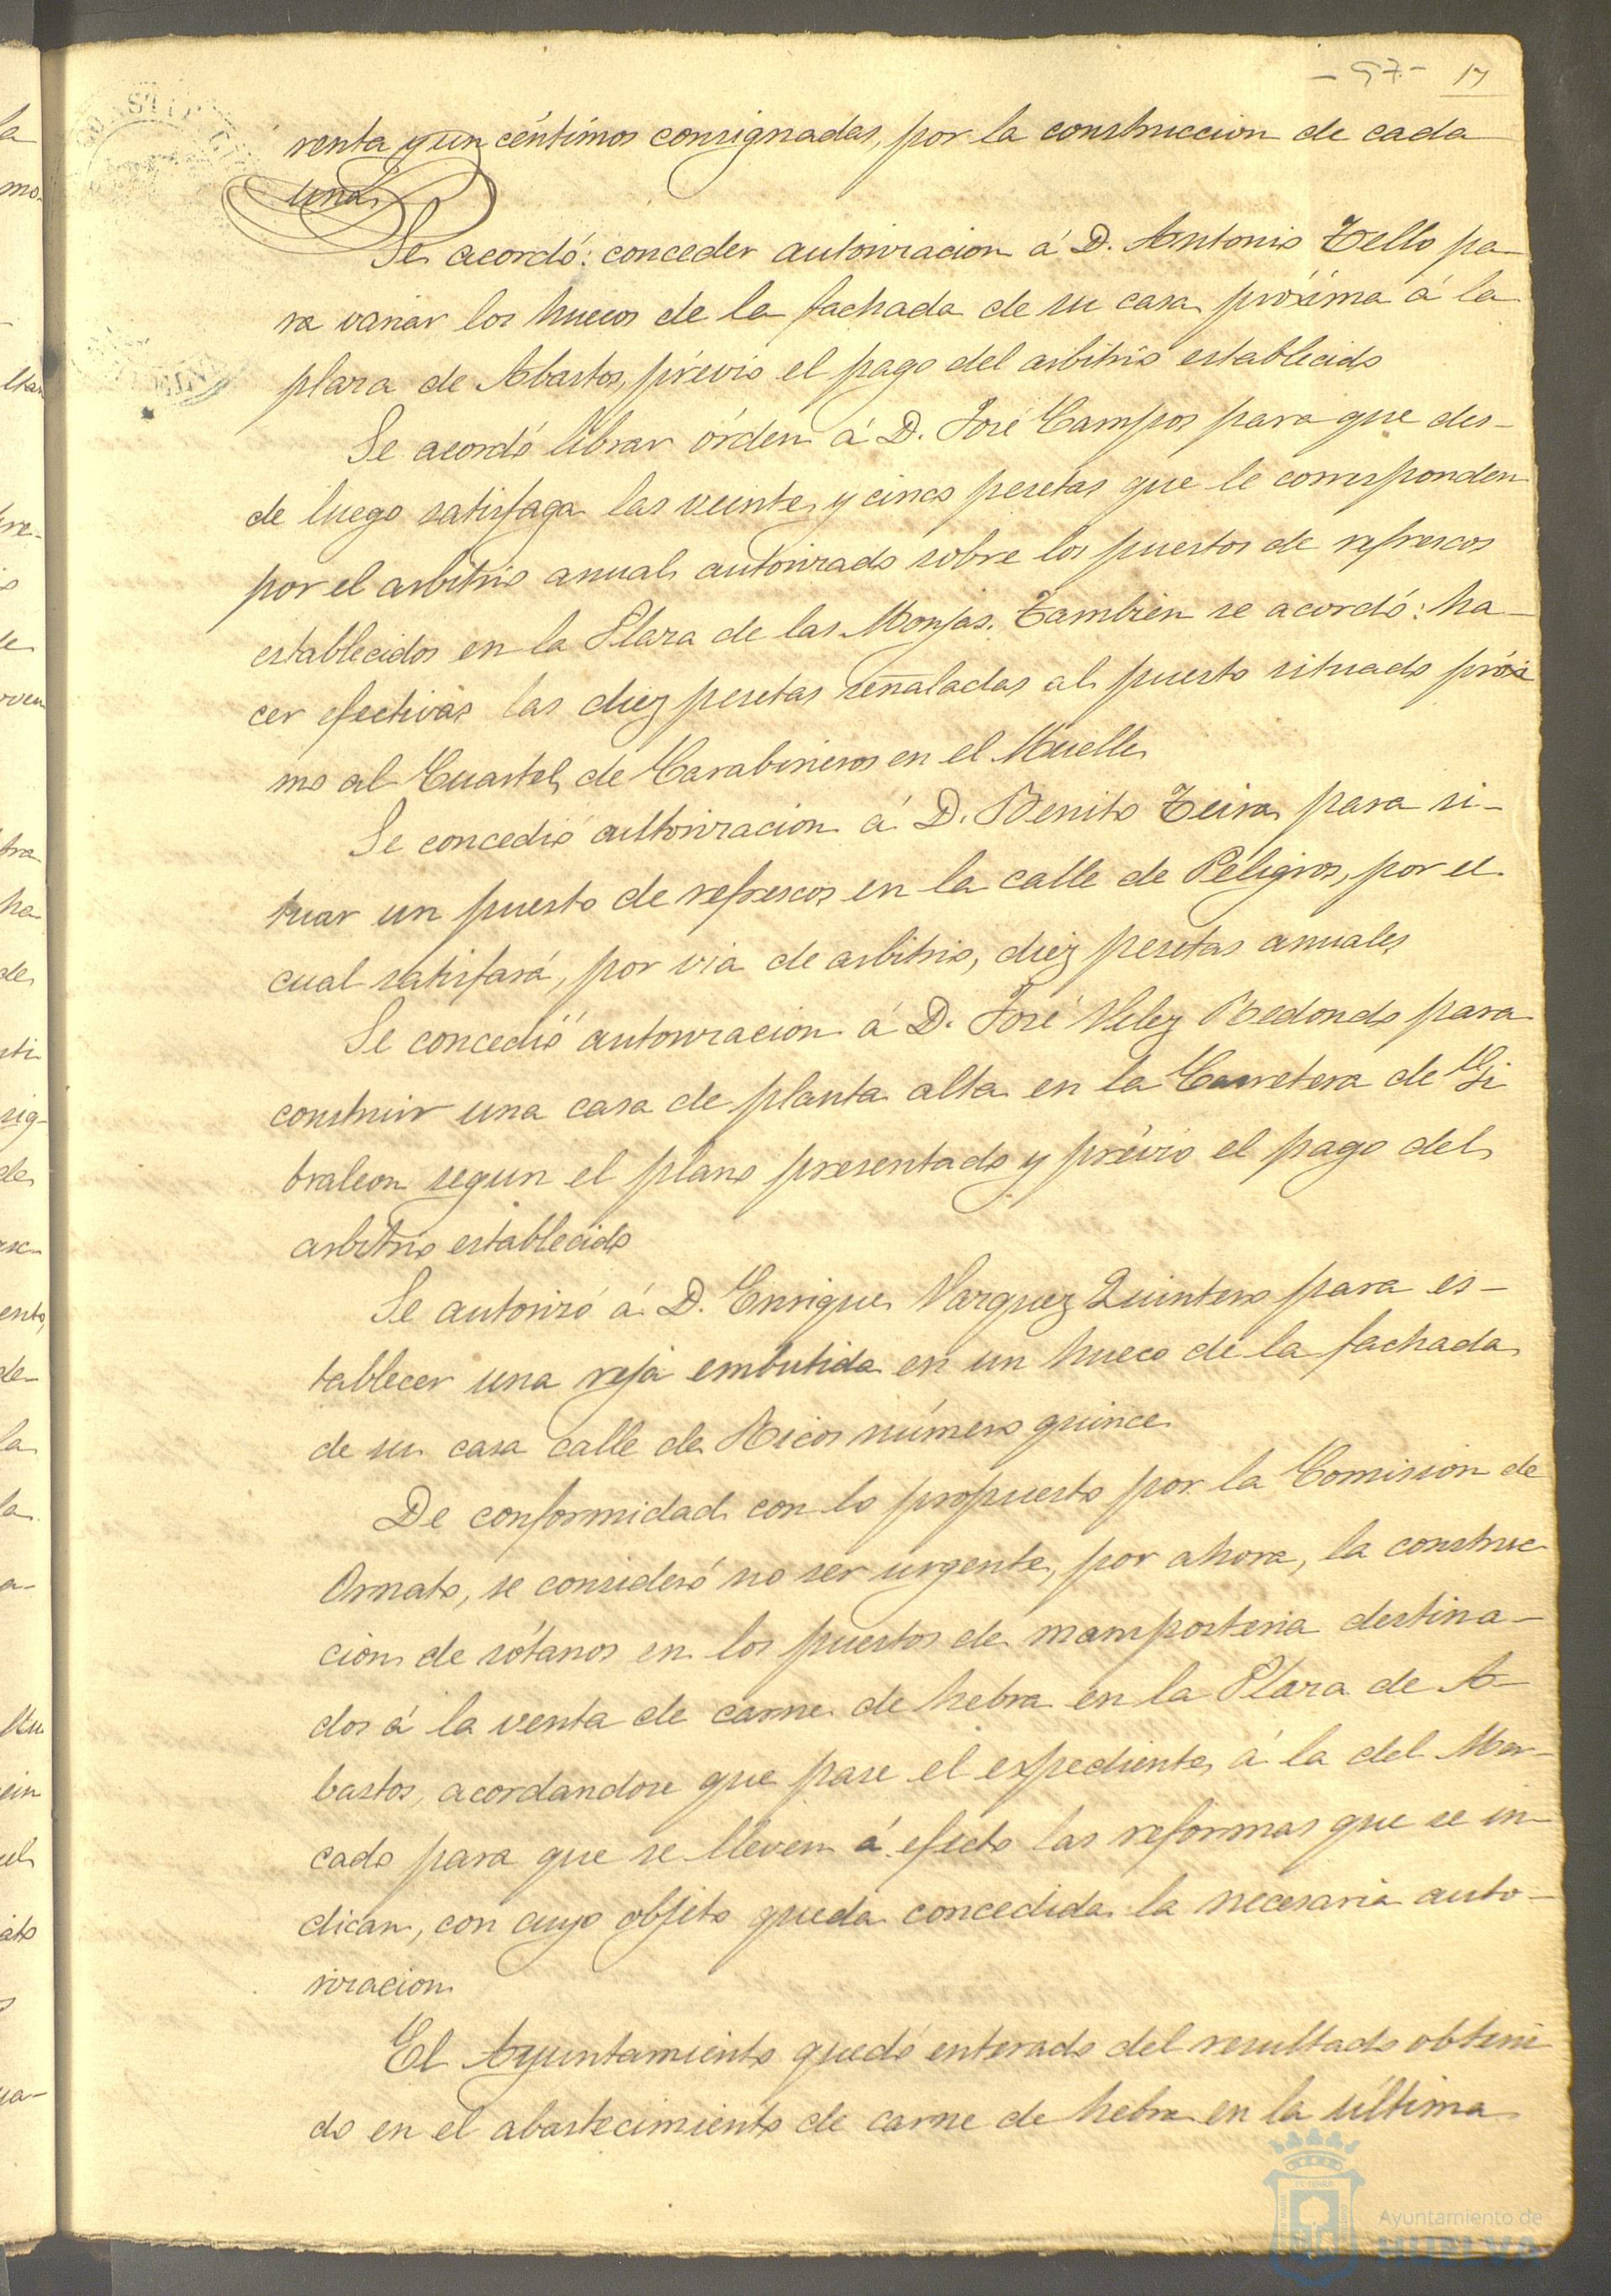 - 57 - 17
renta y un céntimos consignadas, por la construccion de cada
una.
Se acordó: conceder autorizacion á D. Antonio Tello pa-
ra variar los huecos de la fachada de su casa próxima á la
plaza de Abastos, prévio el pago del arbitrio establecido
Se acordó librar órden á D. José Campos para que des-
de luego satisfaga las veinte y cinco pesetas que le corresponden
por el arbitrio anual autorizado sobre los puestos de refrescos
establecidos en la Plaza de las Monjas. Tambien se acordó: ha-
cer efectivas las diez pesetas señaladas al puesto situado próxi
mo al Cuartel de Carabineros en el Muelle
Se concedió autorizacion á D. Benito Teira para si-
tuar un puesto de refrescos en la calle de Peligros, por el
cual satisfará, por via de arbitrio, diez pesetas anuales
Se concedió autorizacion á D. José Velez Redondo para
construir una casa de planta alta en la Carretera de Gi
braleon segun el plano presentado y prévio el pago del
arbitrio establecido
Se autorizó á D. Enrique Vazquez Quintero para es-
tablecer una reja embutida en un hueco de la fachada
de su casa calle de Ricos número quince
De conformidad con lo propuesto por la Comision de
Ornato, se consideró no ser urgente, por ahora, la construc
cion de sótanos en los puestos de mamposteria destina-
dos á la venta de carne de hebra en la Plaza de A-
bastos, acordandose que pase el expediente á la del Mer-
cado para que se lleven á efecto las reformas que se in-
dican, con cuyo objeto queda concedida la necesaria auto-
rizacion
El Ayuntamiento quedó enterado del resultado obteni
do en el abastecimiento de carne de hebra en la última
Ayuntamiento de
HUELVA